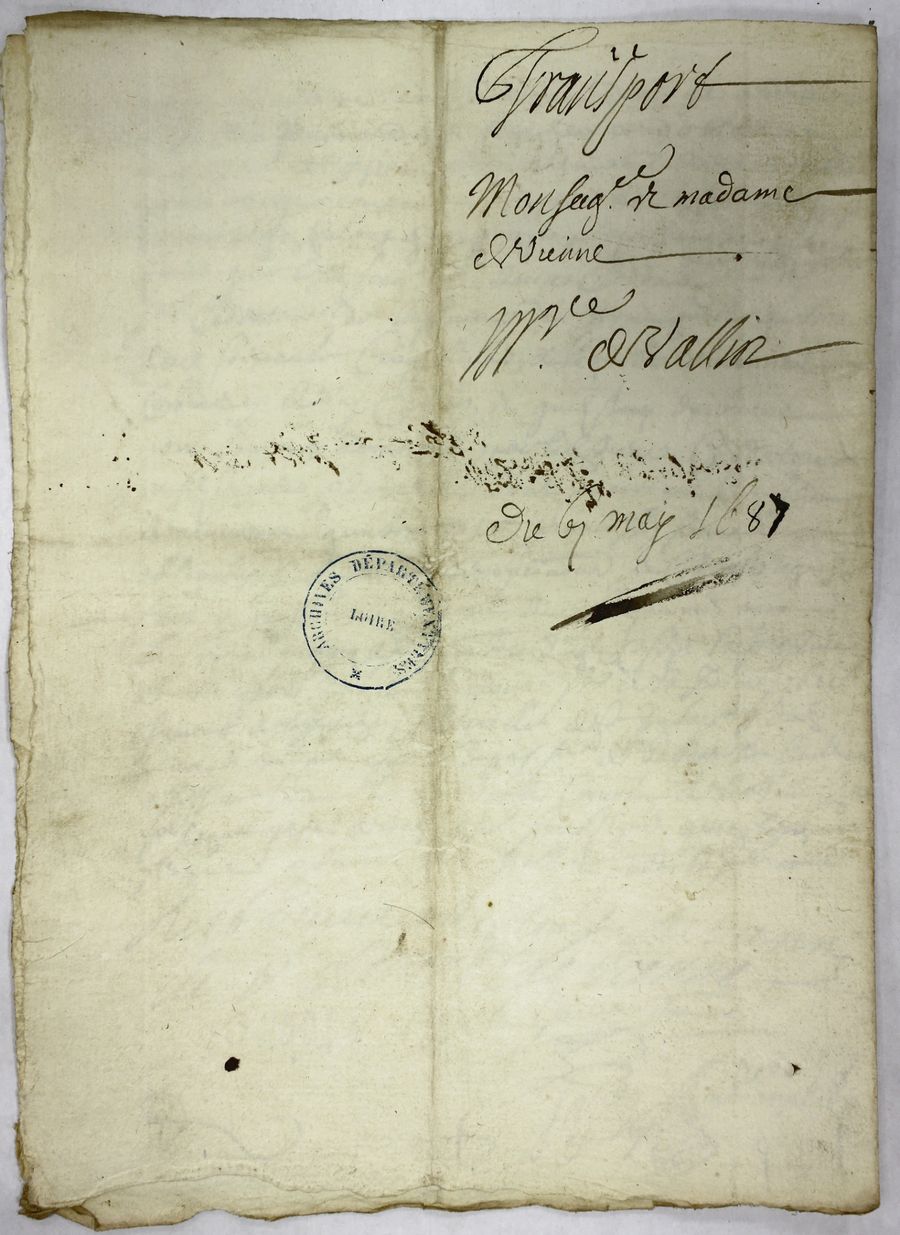 Transport
Monseigr. et madame
de Vienne
Mre de Vallin
du 6 may 1687
ARCHIVES DÉPARTEMENTALES
LOIRE